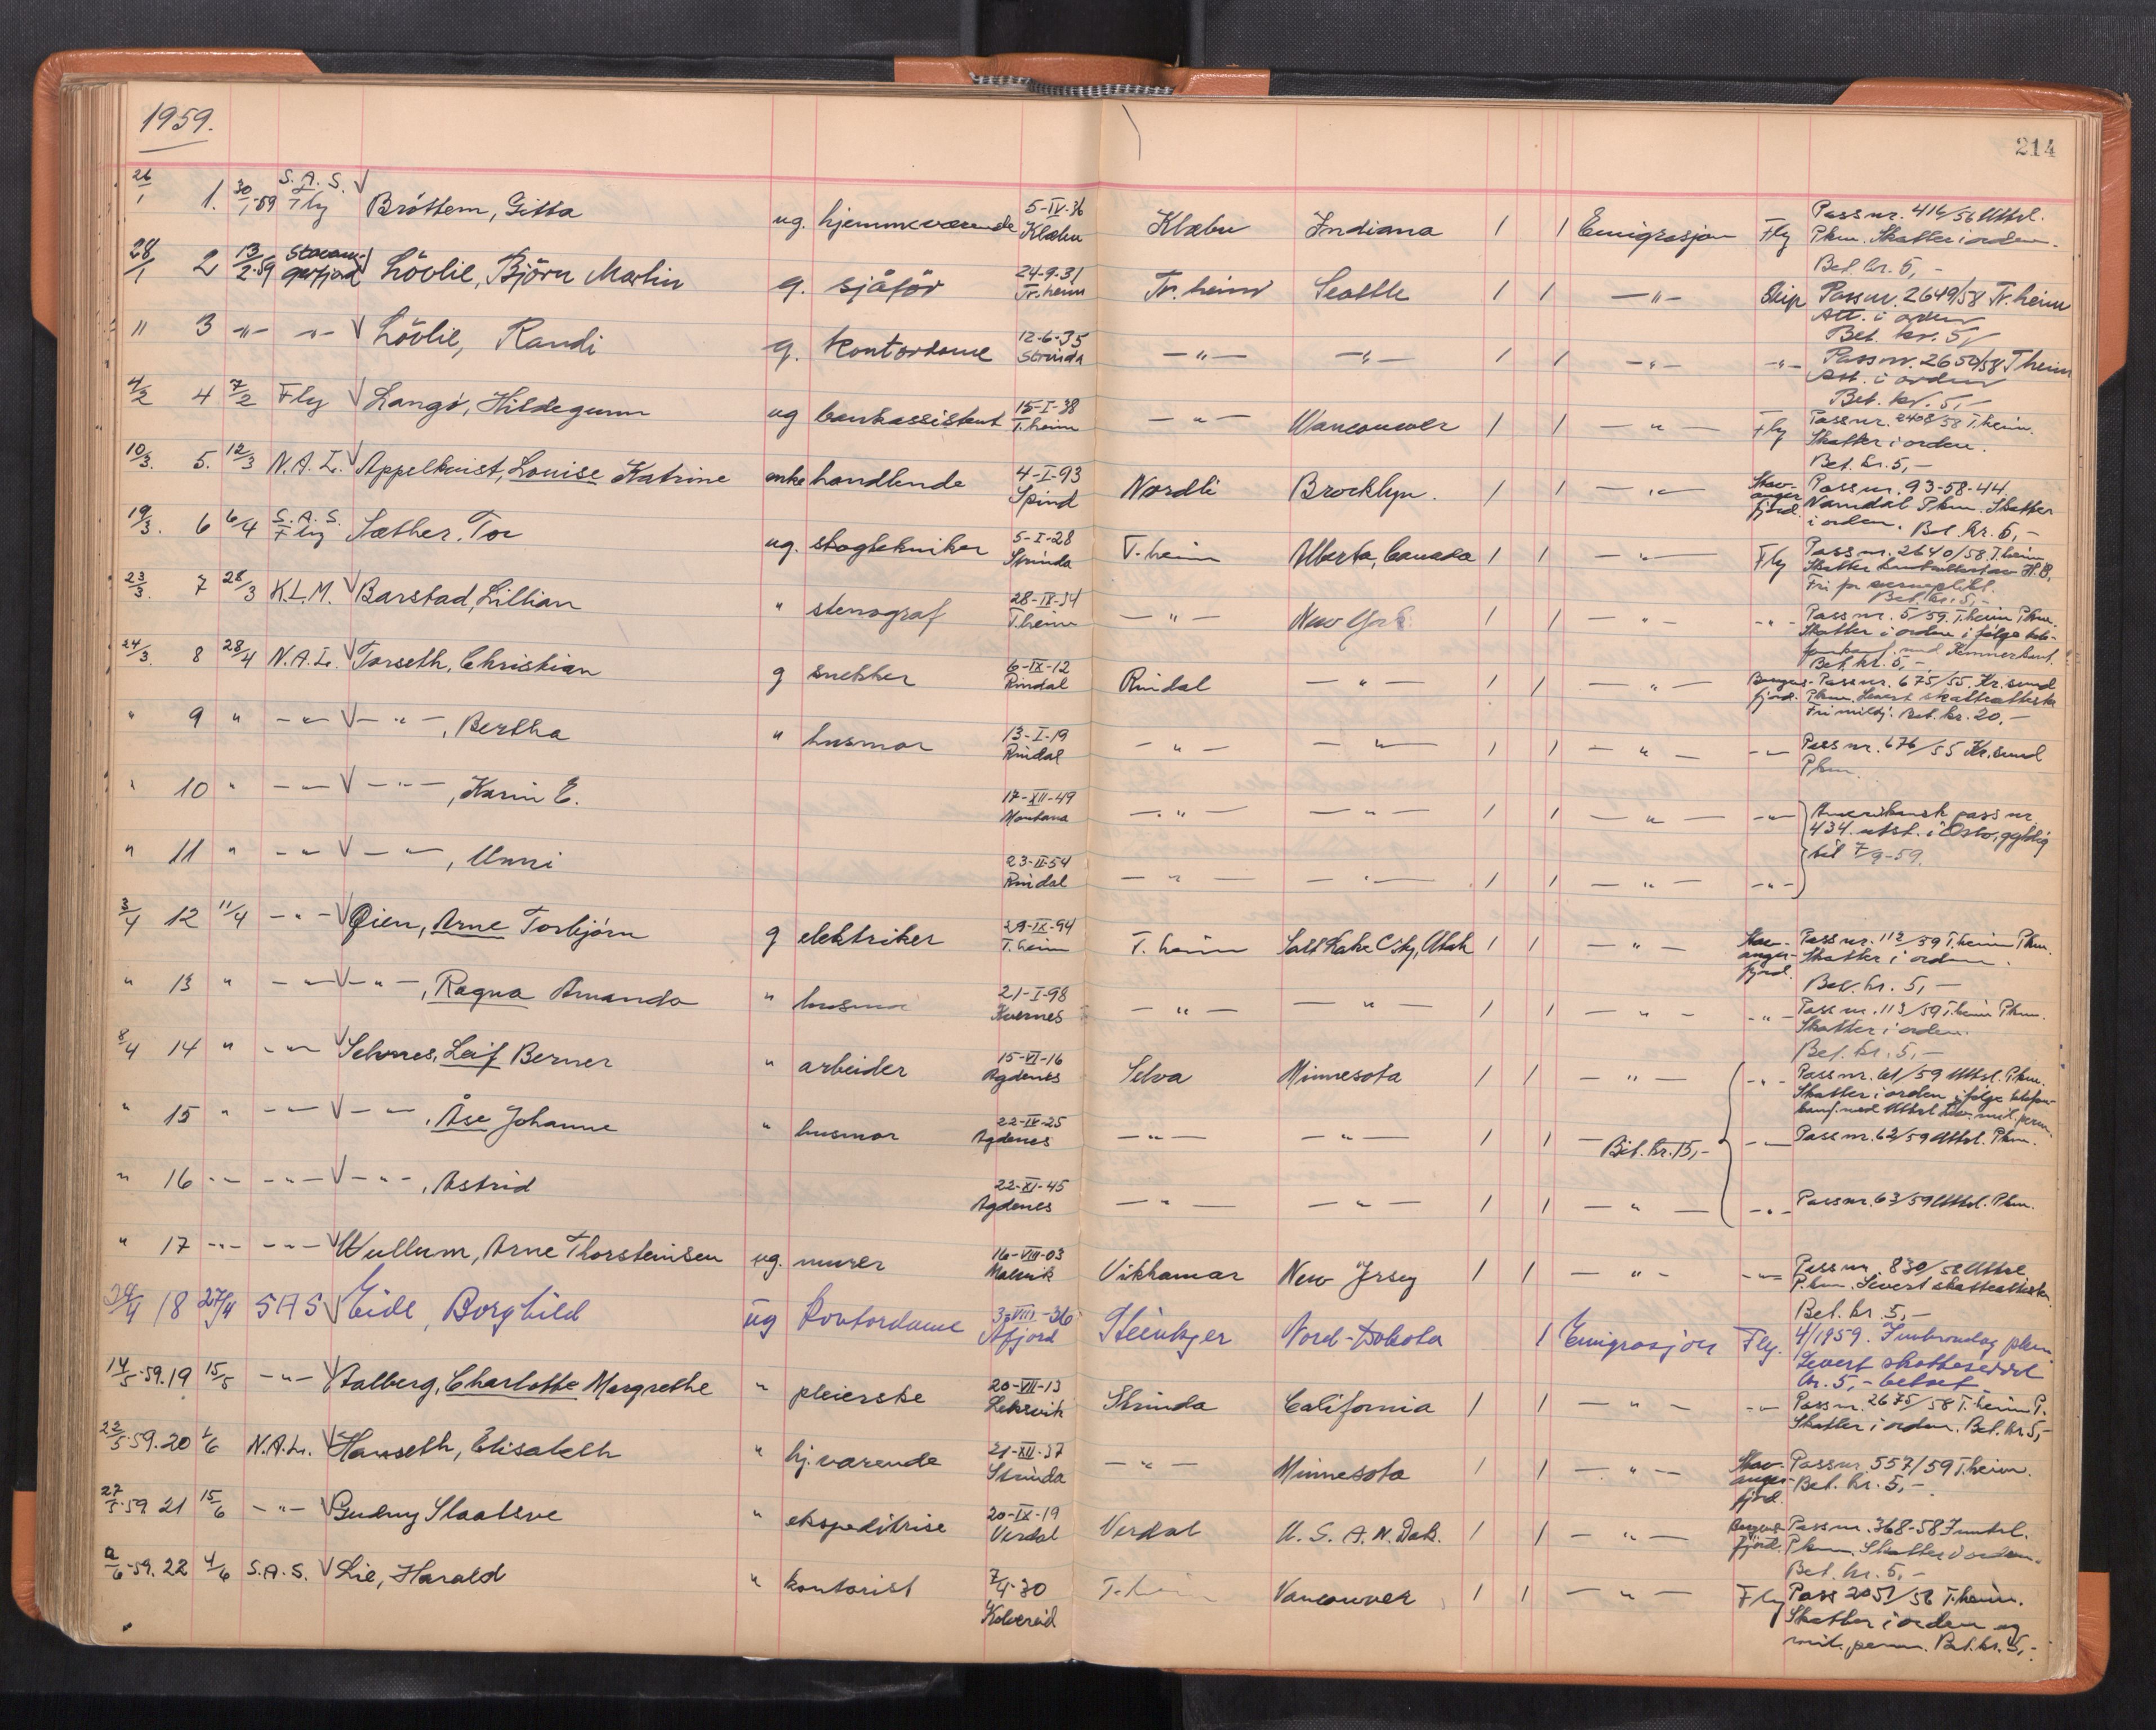 1959.
214
26/1 1. 30/1-59 S.A.S. Fly Bröttem, Gitta ug. hjemmeværende 5-IV-36 Klæbu Klæbu Indiana 1 1 Emigrasjon Fly Pass nr. 416/56 Uttrl. Pkm. Skatter i orden. Bet. kr. 5,-
28/1 2 13/2-59 Stavangerfjord Lövlie, Björn Martin g. sjåför 24-9-31 Tr.heim Tr.heim Seattle 1 1 -"- Skip Pass nr. 2649/58 Tr.heim Att. i orden Bet. kr. 5,-
" 3 -"- -"- Lövlie, Randi g. Kontordame 12-6-35 Strinda -"- -"- 1 1 -"- -"- Pass nr. 2650/58 T heim Att. i orden Bet. kr. 5,-
4/2 4 7/2 Fly Langö, Hildegunn ug bankassistent 15-I-38 T.heim -"- Wancouwer 1 1 -"- Fly Pass nr. 2408/58 T.heim. Skatter i orden. Bet. kr. 5,-
10/3. 5. 12/3 N.A.L. Appelkvist, Louise Katrine enke handlende 4-I-93 Spind Nordli Brocklyn. 1 1 -"- Stavangerfjord. Pass nr. 93-58-44 Namdal Pkm. Skatter i orden. Bet. kr. 5,-
19/3. 6 6/4 S.A.S. Fly Sæther, Tor ug. skogtekniker 5-I-28 Strinda T.heim Alberta, Canada 1 1 -"- Fly Pass nr. 2640/58 T.heim Skatter
23/3. 7 28/3 K.L.M. Barstad, Lillian " stenograf 28-IX-34 T.heim -"- New York 1 1 -"- -"- Pass nr. 5/59. T.heim Pkm. Skatter i orden i følge Bet. kr. 5,-
24/3. 8 28/4 N.A.L. Torseth, Christian g snekker 6-IX-12 Rindal Rindal -"- 1 1 -"- Bergensfjord. Pass nr. 675/55. Kr.sund Pkm. Levert skatteattester Fri milj. Bet. kr. 20,-
" 9 " -"- -"-, Bertha " husmor 13-I-19 Rindal -"- -"- 1 1 -"- -"- Pass nr. 676/55 Kr.sund Pkm.
" 10 " -"- -"-, Karin E. 17-XII-49 Montana -"- -"- 1 1 -"- -"- Amerikansk pass nr. 434. utst. i Oslo, gyldig til 7/9-59.
" 11 " -"- -"-, Unni 23-II-54 Rindal -"- -"- 1 1 -"- -"-
3/4 12 11/4 -"- Øien, Arne Torbjörn g elektriker 29-IX-94 T.heim T.heim Salt Lake City, Utah 1 1 -"- Stavangerfjord. Pass nr. 112/59 T.heim Pkm. Skatter i orden. Bet. kr. 5,-
" 13 " -"- -"-, Ragna Amanda " husmor 21-I-98 Kvernes -"- -"- 1 1 -"- -"- Pass nr. 113/59 T.heim Pkm. Skatter i orden. Bet. kr. 5,-
8/4 14 " -"- Selvnes, Leif Berner " arbeider 15-VI-16 Agdenes Selva Minnesota 1 1 -"- -"- Pass nr. 61/59 Uttrl. Pkm. Skatter i orden ifølge
" 15 " -"- -"-, Åse Johanne " husmor 22-IX-25 Agdenes -"- -"- 1 1 - Bet. kr. 15,- -"- Pass nr. 62/59 Uttrl. Pkm.
" 16 -"- -"- -"-, Astrid 22-XI-45 Agdenes -"- -"- 1 1 -"- -"- Pass nr. 63/59 Uttrl. Pkm.
" 17 -"- -"- Wullum, Arne Thorsteinsen ug. murer 16-VIII-03 Malvik Vikhamar New Jersey 1 1 -"- -"- Pass nr. 830/58 Uttrl. P.km. Levert skatteattester. Bet. kr. 5,-
24/4 18 27/4 SAS Eide, Borghild ug kontordame 3-VIII-36 Åfjord Steinkjer Nord-Dakota 1 Emigrasjon Fly. 4/1959. Innherred pkm. Levert skatteseddel kr. 5,- betalt
14/5-59. 19 15/5 -"- Aalberg, Charlotte Margrethe " pleierske 20-VII-13 Leksvik Strinda California 1 1 -"- -"- Pass nr. 2675/58 T.heim P. Skatter i orden. Bet. kr. 5,-
22/5-59. 20 1/6 N.A.L. Hanseth, Elisabeth " hj.værende 21-XII-37 Strinda -"- Minnesota 1 1 -"- Stavangerfjord. Pass nr. 557/59 T.heim. Bet. kr. 5,-
27/5-59. 21 15/6 -"- Gudny Slaatsve " ekspeditrise 20-IX-19 Verdal Verdal U.S.A. N.Dak. 1 1 -"- Bergensfjord. Pass nr. 368-58 Pkm. Skatter i orden. Bet. kr. 5,-
2/6-59. 22 4/6 S.A.S. Lie, Harald " kontorist 7/4-30 Kolvereid T.heim Vancouver 1 1 -"- Fly Pass 2051/56 T.heim. Skatter i orden og mil. perm. Bet. kr. 5,-